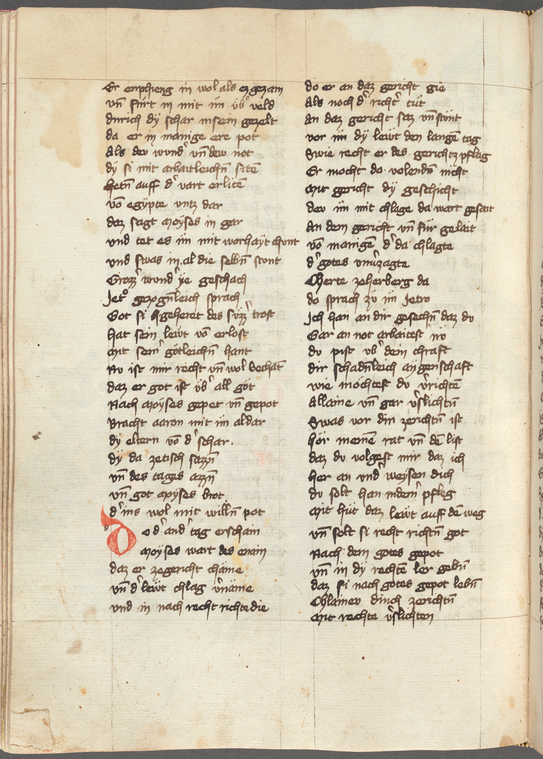 Er enphieng in wol als ez gezam
vn̄ fürt in mit im vb̾ veld
durich dy schar in sein gezelt
da er in manige ere pot
als der wund̾ vn̄ der not
dy si mit arbaitleichn̄ sitē
hetn̄ auff d̾ vart erlitē
vō egypte vntz dar
daz sagt moyses in gar
und tet es im mit worhayt chunt
und swas in al die selbn̄ stunt
Grozz̾ wund̾ ye geschach
Jet̾o gezogn̄leich sprach
Got si geheret des süzz̾ trost
hat sein lewt vō erlost
mit sein̾ götleichn̄ hant
Nu ist mir recht vn̄ wol bechāt
daz er got ist vb̾ all göt
Nach moyses gepet vn̄ gepot
Bracht aaron mit im aldar
dy eltern vō d̾ schar.
dy da ze tisch sazzn̄
vn̄ des tages azzn̄
vn̄ got moyses brot.
d̾ ins wol mit willn̄ pot
Do d̾ and̾ tag erschain
moyses wart des enain
daz er ze gericht chäme
vn̄ d̾ lewt chlag v̾näme
und in nach recht richte die
do er an daz gericht gie
Als noch d̾ richt̾ tüt
an daz gericht saz vn̄ stünt
vor im dy lewt den langē tag
Swie recht er des gerichtz pfleg
Er mocht do volendn̄ nicht
mit gericht dy geschicht
der im mit chlage da wart gesait
an dem gericht vn̄ für gelait
vō manigē d̾ da chlagte
d̾ gotes vnu̾zagte
Cherte zeherberg da
do sprach zu im Jetro
Ich han an dir gesechn̄ daz du
Gar an not arbaitest nu
du pist vb̾ dein chraft
dir schadn̄leich angenschaft
wie möchtest du v̾richtē
Allaine vn̄ gar v̾slichtn̄
Swas vor din zerichtn̄ ist
hör meinē rat vn̄ dē list
daz du volgest mir daz ich
her an vnd weysen dich
du solt han in dein̾ pfleg
mit hüt daz lewt auff dē weg
vn̄ solt si recht richtn̄ got
Nach dem gotes gepot
vn̄ in dy rechtē ler gebn̄
daz si nach gotes gepot lebn̄
Chlainew dinch zerichtn̄
mit rechte v̾slichten